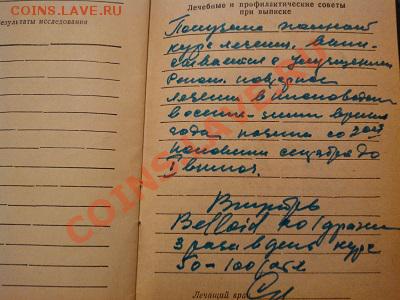 COINS.LAVE.RU
Результаты исследования
Лечебные и профилактические советы
при выписке
Получила полный
курс лечения. Выпи-
сывается с улучшением
Реком. повторное
лечение в
в осенне-зимн время
года, со 2ой
половины сентября до
Внутрь
Belloid по 1 драже
3 раза в день курс
50-100
Лечащий врач
COINS.LAVE.RU